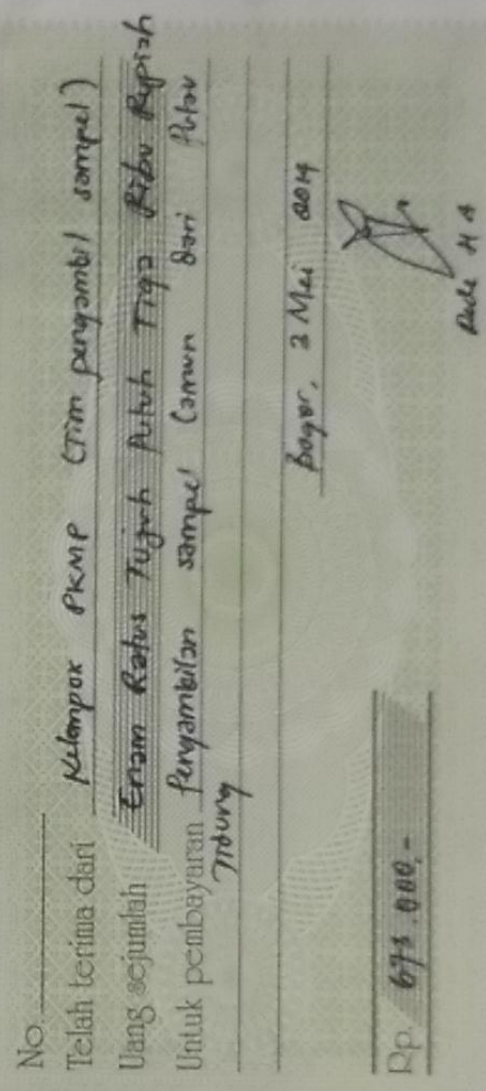 No.
Telah terima dari Kelompok PKMP (Tim pengambil sampel)
Uang sejumlah Enam Ratus Tujuh Puluh Tiga Ribu Rupiah
Untuk pembayaran Pengambilan sampel Lamun dari Pulau
Tidung
Bogor, 3 Mei 2014
Rp. 673.000,-